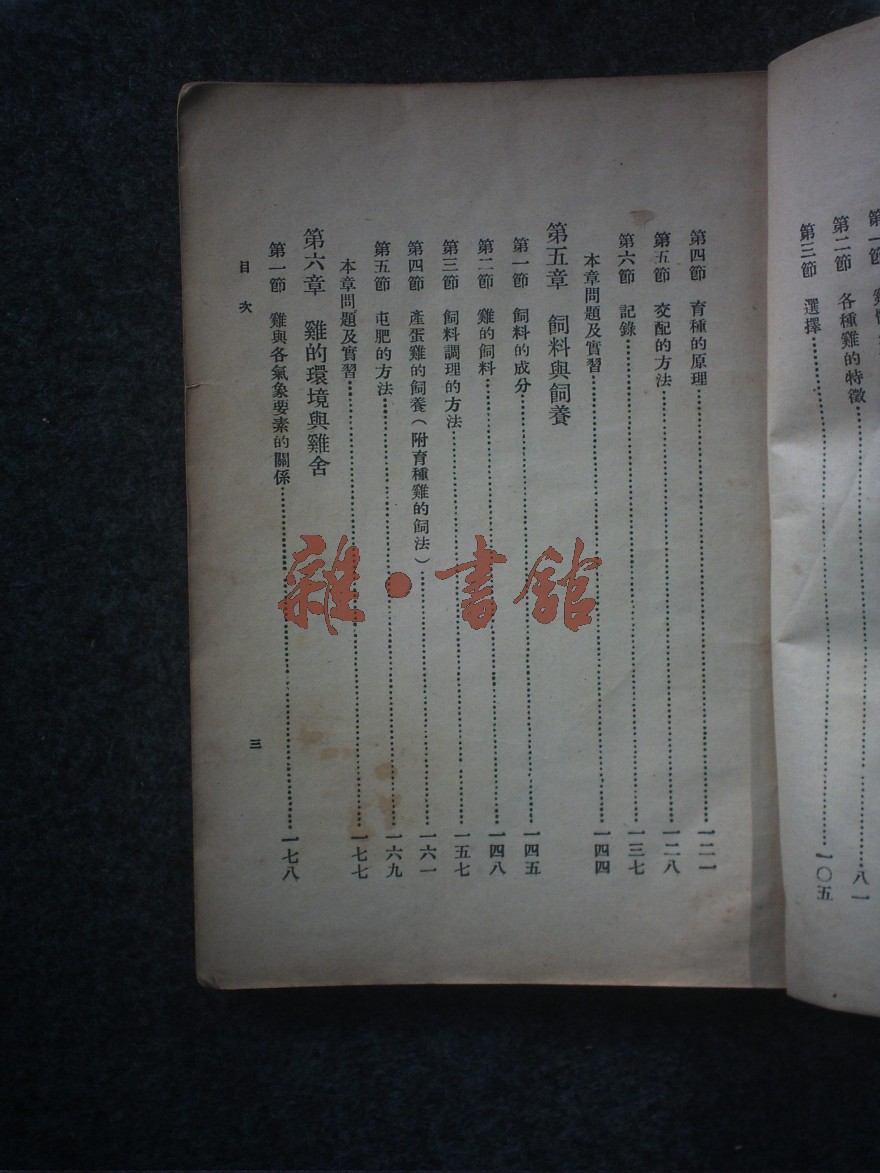 第二節 各種雞的特徵……八一
第三節 選擇……一〇五
第四節 育種的原理……一二一
第五節 交配的方法……一二八
第六節 記錄……一三七
本章問題及實習……一四四
第五章 飼料與飼養
第一節 飼料的成分……一四五
第二節 雞的飼料……一四八
第三節 飼料調理的方法……一五七
第四節 產蛋雞的飼養(附育種雞的飼法)……一六一
第五節 屯肥的方法……一六九
本章問題及實習……一七七
第六章 雞的環境與雞舍
第一節 雞與各氣象要素的關係……一七八
目次
三
雜·書館